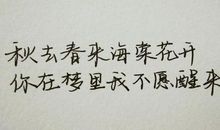 秋去春来海棠花开
你在梦里我不愿醒来